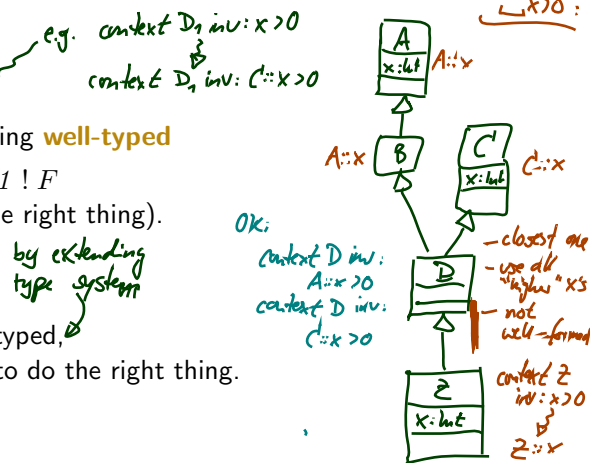 e.g. context D₁ inv: x>0
context D₁ inv: C::x>0
x>0 :
A
x:Int
A::x
ing well-typed
1 ! F
e right thing).
B
A::x
C
x:Int
C::x
by extending
type system
typed,
to do the right thing.
OK:
context D inv:
A::x >0
context D inv:
C::x >0
D
- closest one
- use all
"higher" x's
- not
well-formed
Z
x:Int
context Z
inv: x>0
Z::x